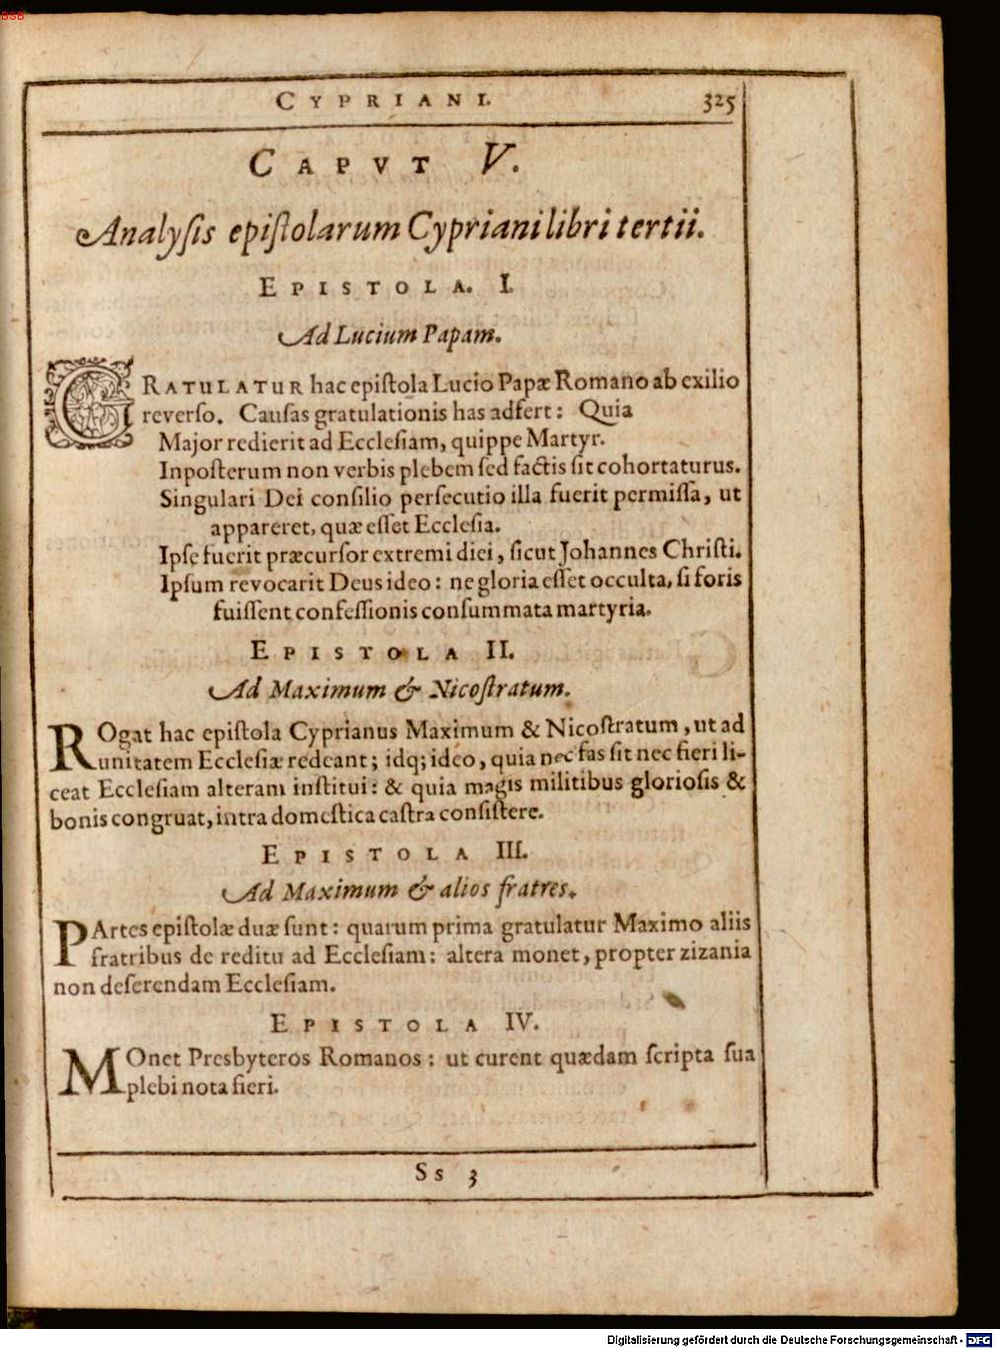 BSB
CYPRIANI. 325
CAPVT V.
Analysis epistolarum Cypriani libri tertii.
EPISTOLA. I.
Ad Lucium Papam.
GRATULATUR hac epistola Lucio Papæ Romano ab exilio
reverso. Causas gratulationis has adfert: Quia
Major redierit ad Ecclesiam, quippe Martyr.
Inposterum non verbis plebem sed factis sit cohortaturus.
Singulari Dei consilio persecutio illa fuerit permissa, ut
appareret, quæ esset Ecclesia.
Ipse fuerit præcursor extremi diei, sicut Johannes Christi.
Ipsum revocarit Deus ideo: ne gloria esset occulta, si foris
fuissent confessionis consummata martyria.
EPISTOLA II.
Ad Maximum & Nicostratum.
ROgat hac epistola Cyprianus Maximum & Nicostratum, ut ad
unitatem Ecclesiæ redeant; idq; ideo, quia nec fas sit nec fieri li-
ceat Ecclesiam alteram institui: & quia magis militibus gloriosis &
bonis congruat, intra domestica castra consistere.
EPISTOLA III.
Ad Maximum & alios fratres.
PArtes epistolæ duæ sunt: quarum prima gratulatur Maximo aliis
fratribus de reditu ad Ecclesiam: altera monet, propter zizania
non deserendam Ecclesiam.
EPISTOLA IV.
MOnet Presbyteros Romanos: ut curent quædam scripta sua
plebi nota fieri.
Ss 3
Digitalisierung gefördert durch die Deutsche Forschungsgemeinschaft - DFG